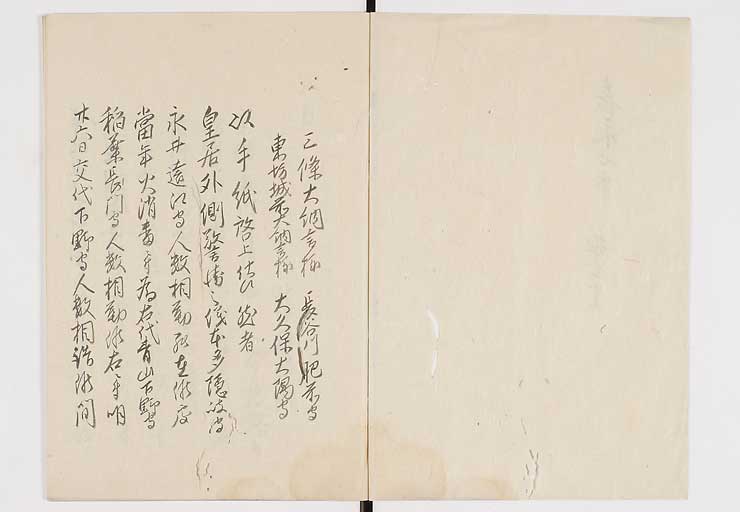 三條大納言様 長谷川肥前守
東坊城前大納言様 大久保大隅守
以手紙啓上仕候然者
皇居外側警衛之儀本多隠岐守
永井遠江守人数相勤罷在候処
當年火消番ニ付為右代青山下野守
稲葉長門守人数相勤候右ニ付明
廿六日交代下野守人数相詰候間